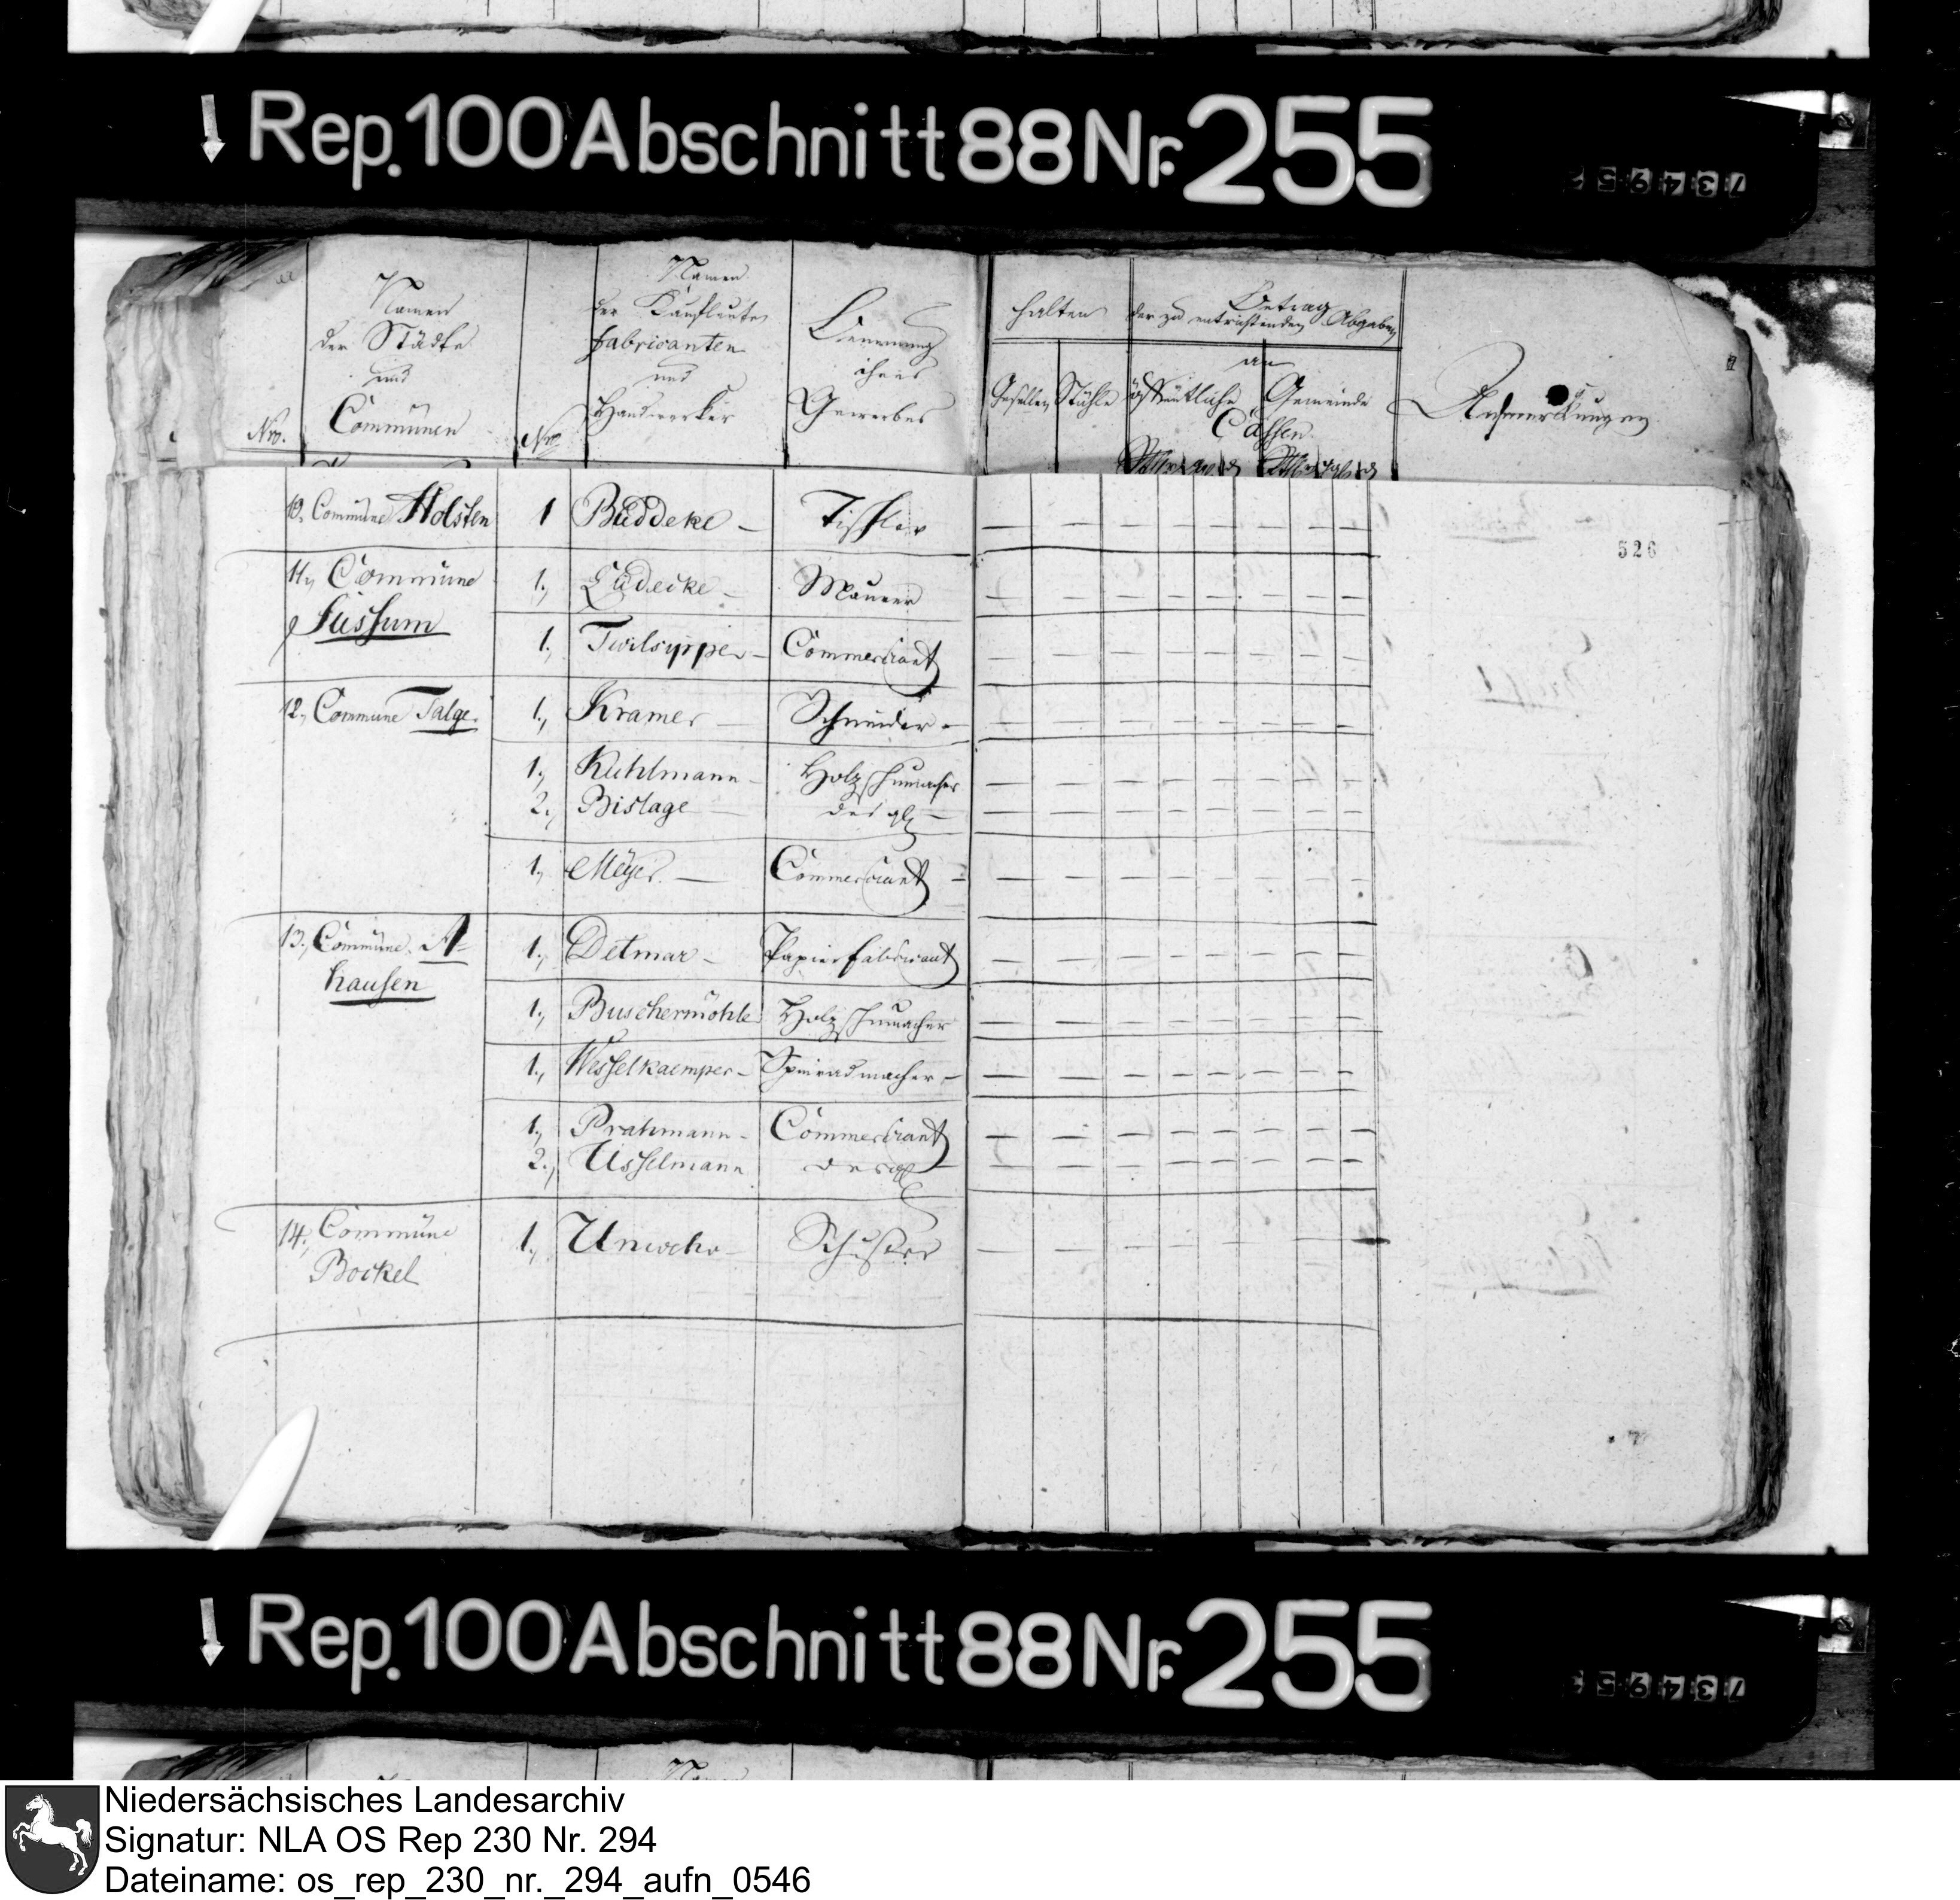 Rep. 100 Abschnitt 88 Nr. 255
734 95
Nro.
Namen
der Städte
und
Communen
Nro
Namen
der Kaufleute
Fabricanten
und
Handwerker
Benennung
ihres
Gewerbes
halten
Gesellen Stühle
Betrag
der zu entrichtenden Abgaben
an
öffentliche Gemeinde
Cassen
Anmerkungen
526
10, Commüne Holsten 1 Büddeke — Tischler — — — — — — — —
11, Commüne 1., Lüdecke — Maurer — — — — — — — —
Füssum
1., Twilsipper — Commerciant — — — — — — — —
12., Commune Talge. 1., Kramer — Schneider — — — — — — — — —
1., Kuhlmann — Holzschumacher — — — — — — — —
2., Bislage — desgl — — — — — — — — —
1., Meyer. — Commerciant — — — — — — — — —
13., Commüne A= 1., Detmar — Papierfabricant — — — — — — — —
hausen
1., Buschermöhle Holzschumacher — — — — — — — —
1., Wesselkaemper — Spinradmacher — — — — — — — — —
1., Prahmann — Commerciant — — — — — — — —
2., Usselmann desgl — — — — — — — —
14., Commüne 1., Unwehr — Schuster — — — — — — — —
Bockel
Rep. 100 Abschnitt 88 Nr. 255
734 95
Niedersächsisches Landesarchiv
Signatur: NLA OS Rep 230 Nr. 294
Dateiname: os_rep_230_nr._294_aufn_0546